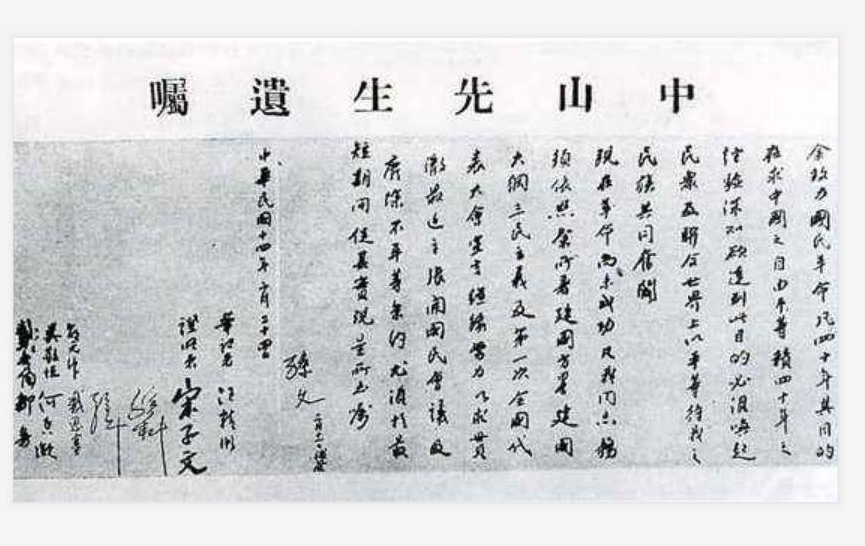 中山先生遺囑
余致力國民革命凡四十年其目的
在求中國之自由平等積四十年之
經驗深知欲達到此目的必須喚起
民衆及聯合世界上以平等待我之
民族共同奮鬪
現在革命尚未成功凡我同志務
須依照余所著建國方略建國
大綱三民主義及第一次全國代
表大會宣言繼續努力以求貫
徹最近主張開國民會議及
廢除不平等條約尤須於最
短期間促其實現是所至囑
孫文 三月十一日補簽
中華民國十四年二月二十四日
筆記者 汪精衛
證明者 宋子文
孫科
邵元冲 戴恩賽
吳敬恆 何香凝
鄒魯